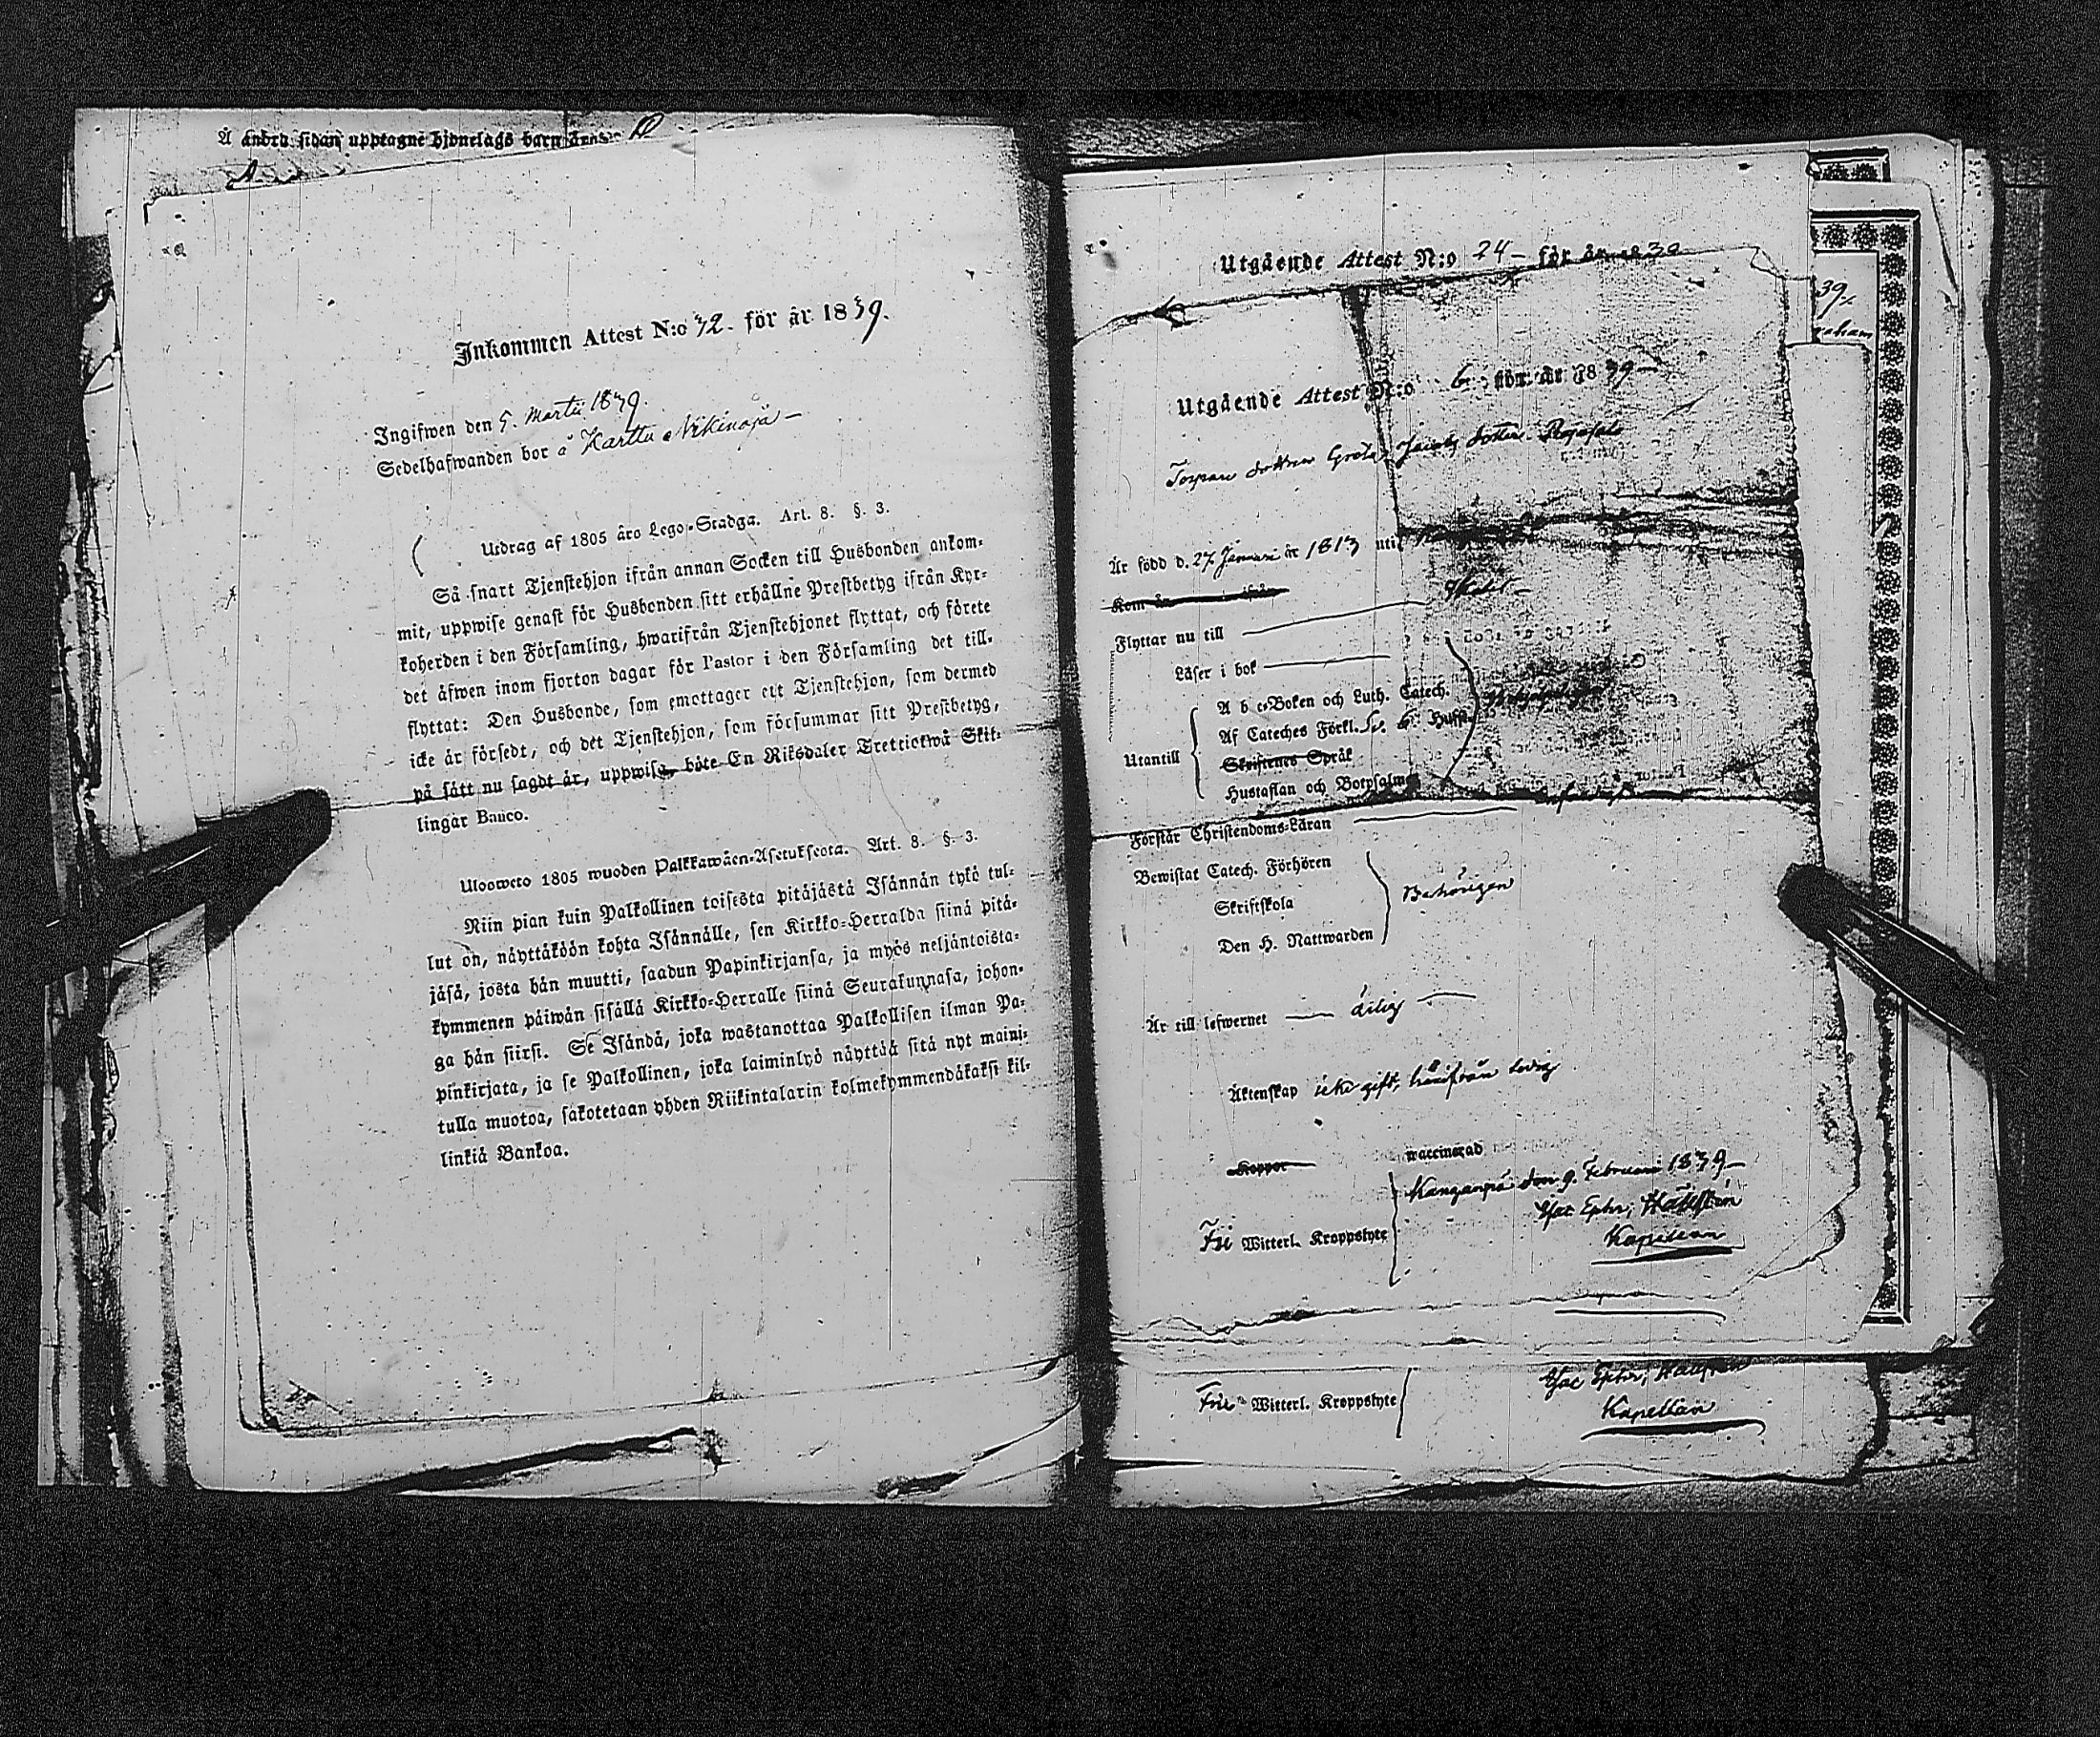 Å andra sidan upptagne hjonelags barn äro:
Inkommen Attest N:o 32. för år 1839.
Ingifwen den 5. Martii 1839.
Sedelhafwanden bor å Karttu Nikinoja –
Utdrag af 1805 åro Lego-Stadga. Art. 8. §. 3.
Så snart Tjenstehjon ifrån annan Socken till Husbonden ankom-
mit, uppwise genast för Husbonden sitt erhållne Prestbetyg ifrån Kyr-
koherden i den Församling, hwarifrån Tjenstehjonet flyttat, och förete
det äfwen inom fjorton dagar för Pastor i den Församling det till-
flyttat: Den Husbonde, som emottager ett Tjenstehjon, som dermed
icke är försedt, och det Tjenstehjon, som försummar sitt Prestbetyg,
på sätt nu sagdt är, uppwisa, böte En Riksdaler Trettiotwå Skil-
lingar Banco.
Uloosweto 1805 wuoden Palkkawäen-Asetuksesta. Art. 8. §. 3.
Niin pian kuin Palkollinen toisesta pitäjästä Isännän tykö tul-
lut on, näyttäköön kohta Isännälle, sen Kirkko-Herralda siinä pitä-
jäsä, josta hän muutti, saadun Papinkirjansa, ja myös neljäntoista-
kymmenen päiwän sisällä Kirkko-Herralle siinä Seurakunnasa, johon-
ga hän siirsi. Se Isändä, joka wastanottaa Palkollisen ilman Pa-
pinkirjata, ja se Palkollinen, joka laiminlyö näyttää sitä nyt maini-
tulla muotoa, sakotetaan yhden Riikintalarin kolmekymmendäkaksi kil-
linkiä Bankoa.
Utgående Attest N:o 24 – för år 1839
39
raham
Utgående Attest N:o 6 för år 1839 –
Torpare dottren Greta Jacobs dotter
Är född d. 27 Januari år 1813 uti
Kom år ifrån
Flyttar nu till
Läser i bok
Utantill
A b c-Boken och Luth. Catech.
Af Cateches Förkl. Sv. b. Hufst.
Skriftenes Språk
Hustaflan och Botpsalmer
Förstår Christendoms-Läran
Bewistat Catech. Förhören
Skriftskola
Den H. Nattwarden
Behörigen
Är till lefwernet ärlig
Äktenskap icke gift, härifrån ledig
Koppor
waccinerad
Kangaspä den 9. Februari 1839 –
Fri Witterl. Kroppslyte
Isac Ephr, Hällström
Kapellan
Fri Witterl. Kroppslyte
Isac Ephr, Hällström
Kapellan